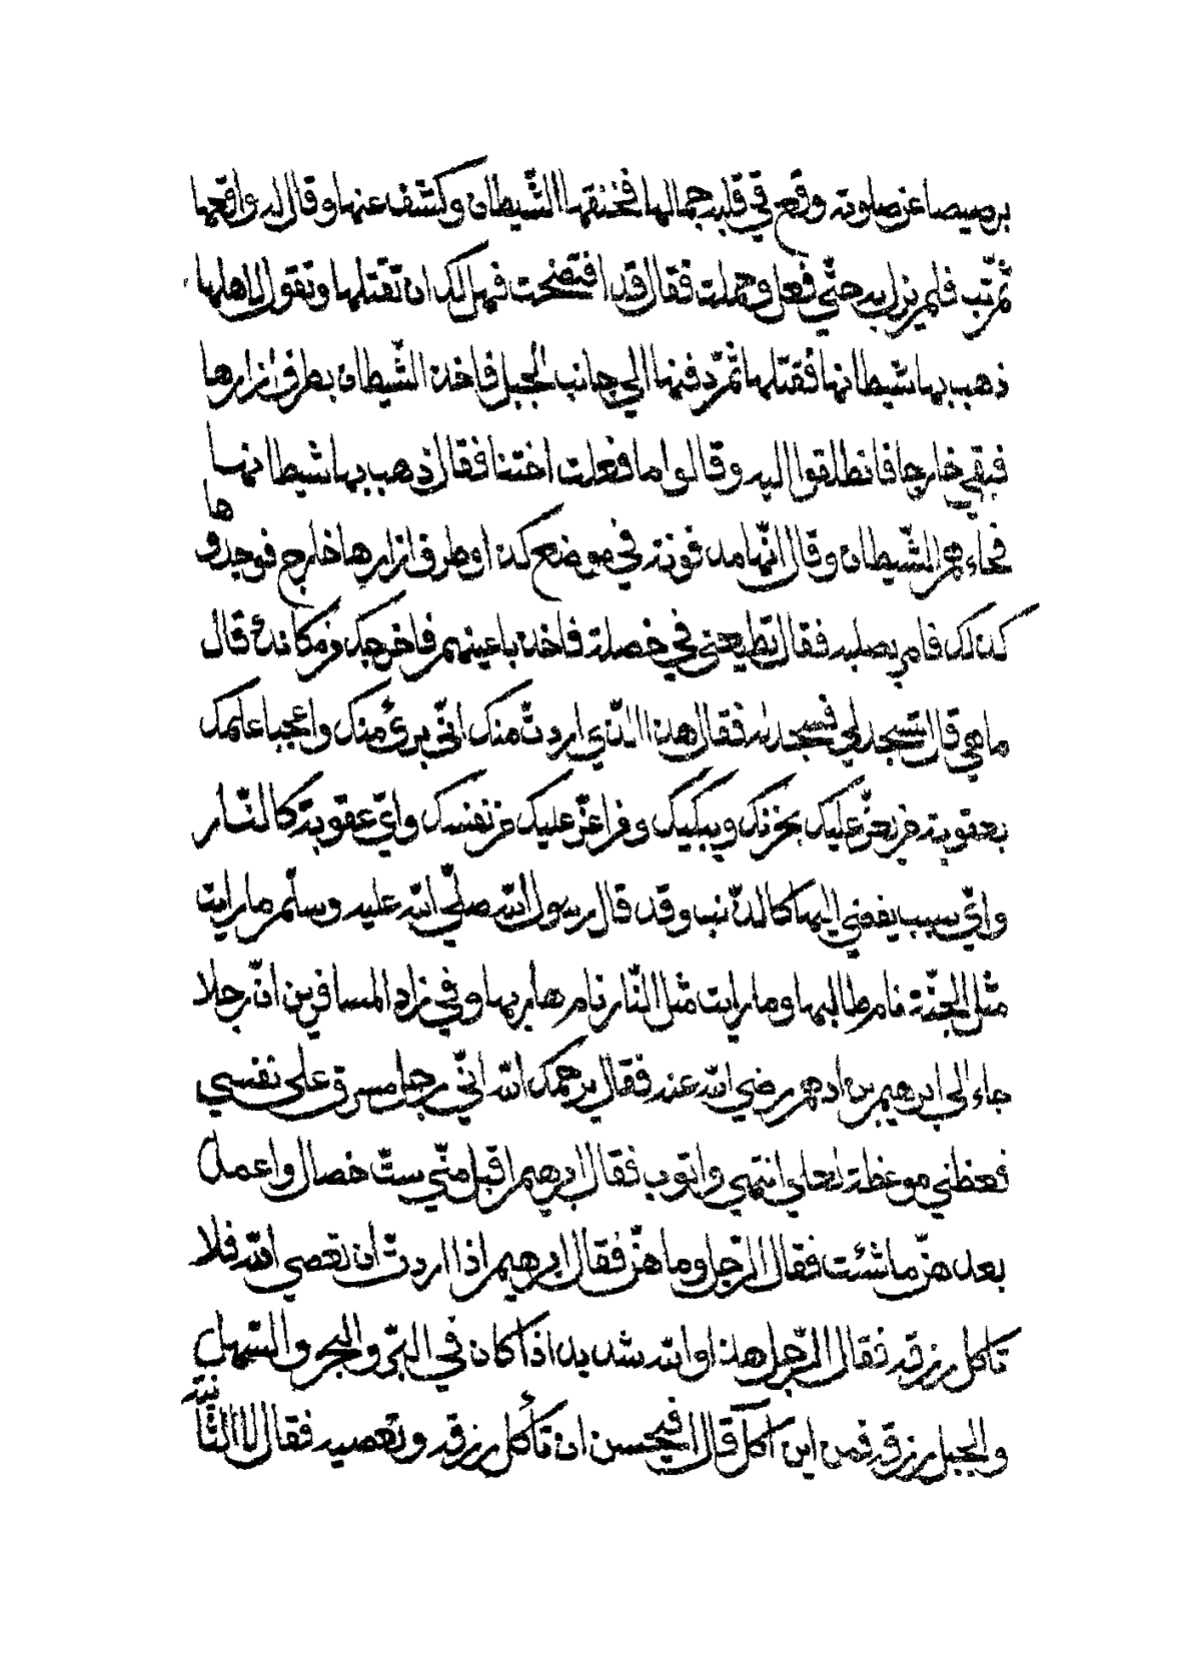 برصيصا عن صلوته وقع في قلبه جمالها فخنقها الشّيطان وكشف عنها وقال له واقعها
ثمّ تب فلم يزل به حتّي فعل وحملت فقال قد افتضحت فهل لك ان تقتلها وتقول لاهلها
ذهب بها شيطانها فقتلها ثمّ دفنها الي جانب الجبل فاخذ الشّيطان بطرف ازارها
فبقي خارجا فانطلقوا اليه وقالوا ما فعلت اختنا فقال ذهب بها شيطانها
فجاءهم الشّيطان وقال انّها مدفونة في موضع كذا وطرف ازارها خارج فوجدوها
كذلك فامر بصلبه فقال تطيعني في خصلة فاخذ باعينهم فاخرجك من مكانك قال
ما هي قال تسجد لي فسجد له فقال هذا الّذي اردتّ منك انّي برئ منك واعجبا علمك
بعقوبة من يعزّ عليك يحزنك ويبكيك ومن اعزّ عليك من نفسك وايّ عقوبة كالنّار
وايّ سبب يفضي اليها كالذّنب وقد قال رسول اللّه صلّي اللّه عليه وسلّم ما رايت
مثل الجنّة نام طالبها وما رايت مثل النّار نام هاربها وفي زاد المسافرين انّ رجلا
جاء الي ابرهيم بن ادهم رضي اللّه عنه فقال يرحمك اللّه انّي رجل مسرف علي نفسي
فعظني موعظة لعلي انتهي واتوب فقال ابرهيم اقبل منّي ستّ خصال واعمل
بعد هنّ ما شئت فقال الرّجل وما هنّ فقال ابرهيم اذا اردتّ ان تعصي اللّه فلا
تاكل رزقه فقال الرّجل هذا واللّه شديد اذا كان في البرّ والبحر والسّهل
والجبل رزقه فمن اين آكل قال افيحسن ان تأكل رزقه وتعصيه فقال لا الثّانية